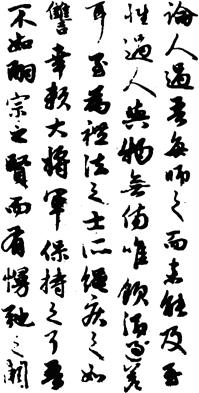 論人過吾每師之而未能及至
性過人與物無傷唯飲酒過差
耳至為禮法之士所繩疾之如
讎幸賴大將軍保持之耳吾
不如嗣宗之賢而有慢弛之闕